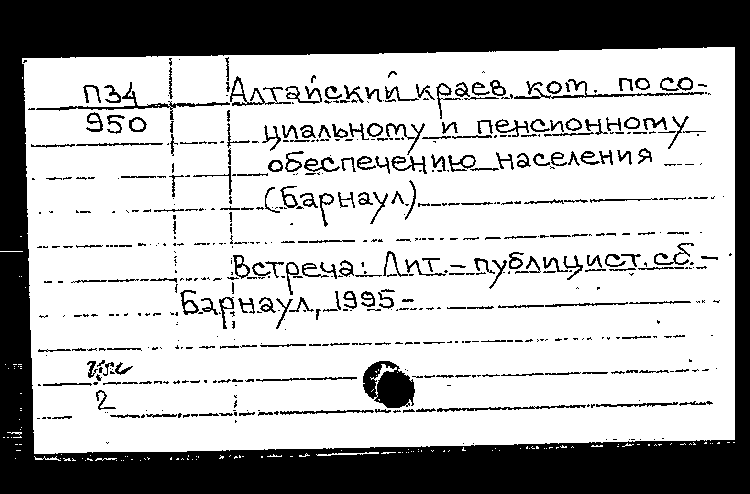 П34
950
Алтайский краев. ком. по со-
циальному и пенсионному
обеспечению населения
(Барнаул)
Встреча: Лит.-публицист. сб.-
Барнаул, 1995-
2